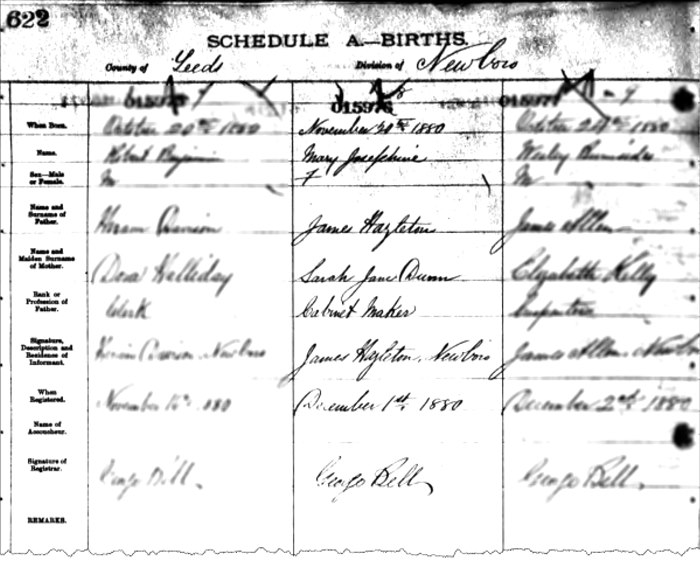 622
SCHEDULE A.—BIRTHS.
County of Leeds Division of Newboro
015976
When Born. October 20th 1880 November 30th 1880 October 24th 1880
Name. Robert Benjamin Mary Josephine Wesley
Sex—Male or Female. M F M
Name and Surname of Father. Hiram Davison James Hazleton James Allen
Name and Maiden Surname of Mother. Dora Halliday Sarah Jane Dunn Elizabeth Kelly
Rank or Profession of Father. Clerk Cabinet Maker Carpenter
Signature, Description and Residence of Informant. Hiram Davison Newboro James Hazleton, Newboro James Allen
When Registered. November December 1st 1880 December 2nd 1880
Name of Accoucheur.
Signature of Registrar. George Bell George Bell George Bell
REMARKS.